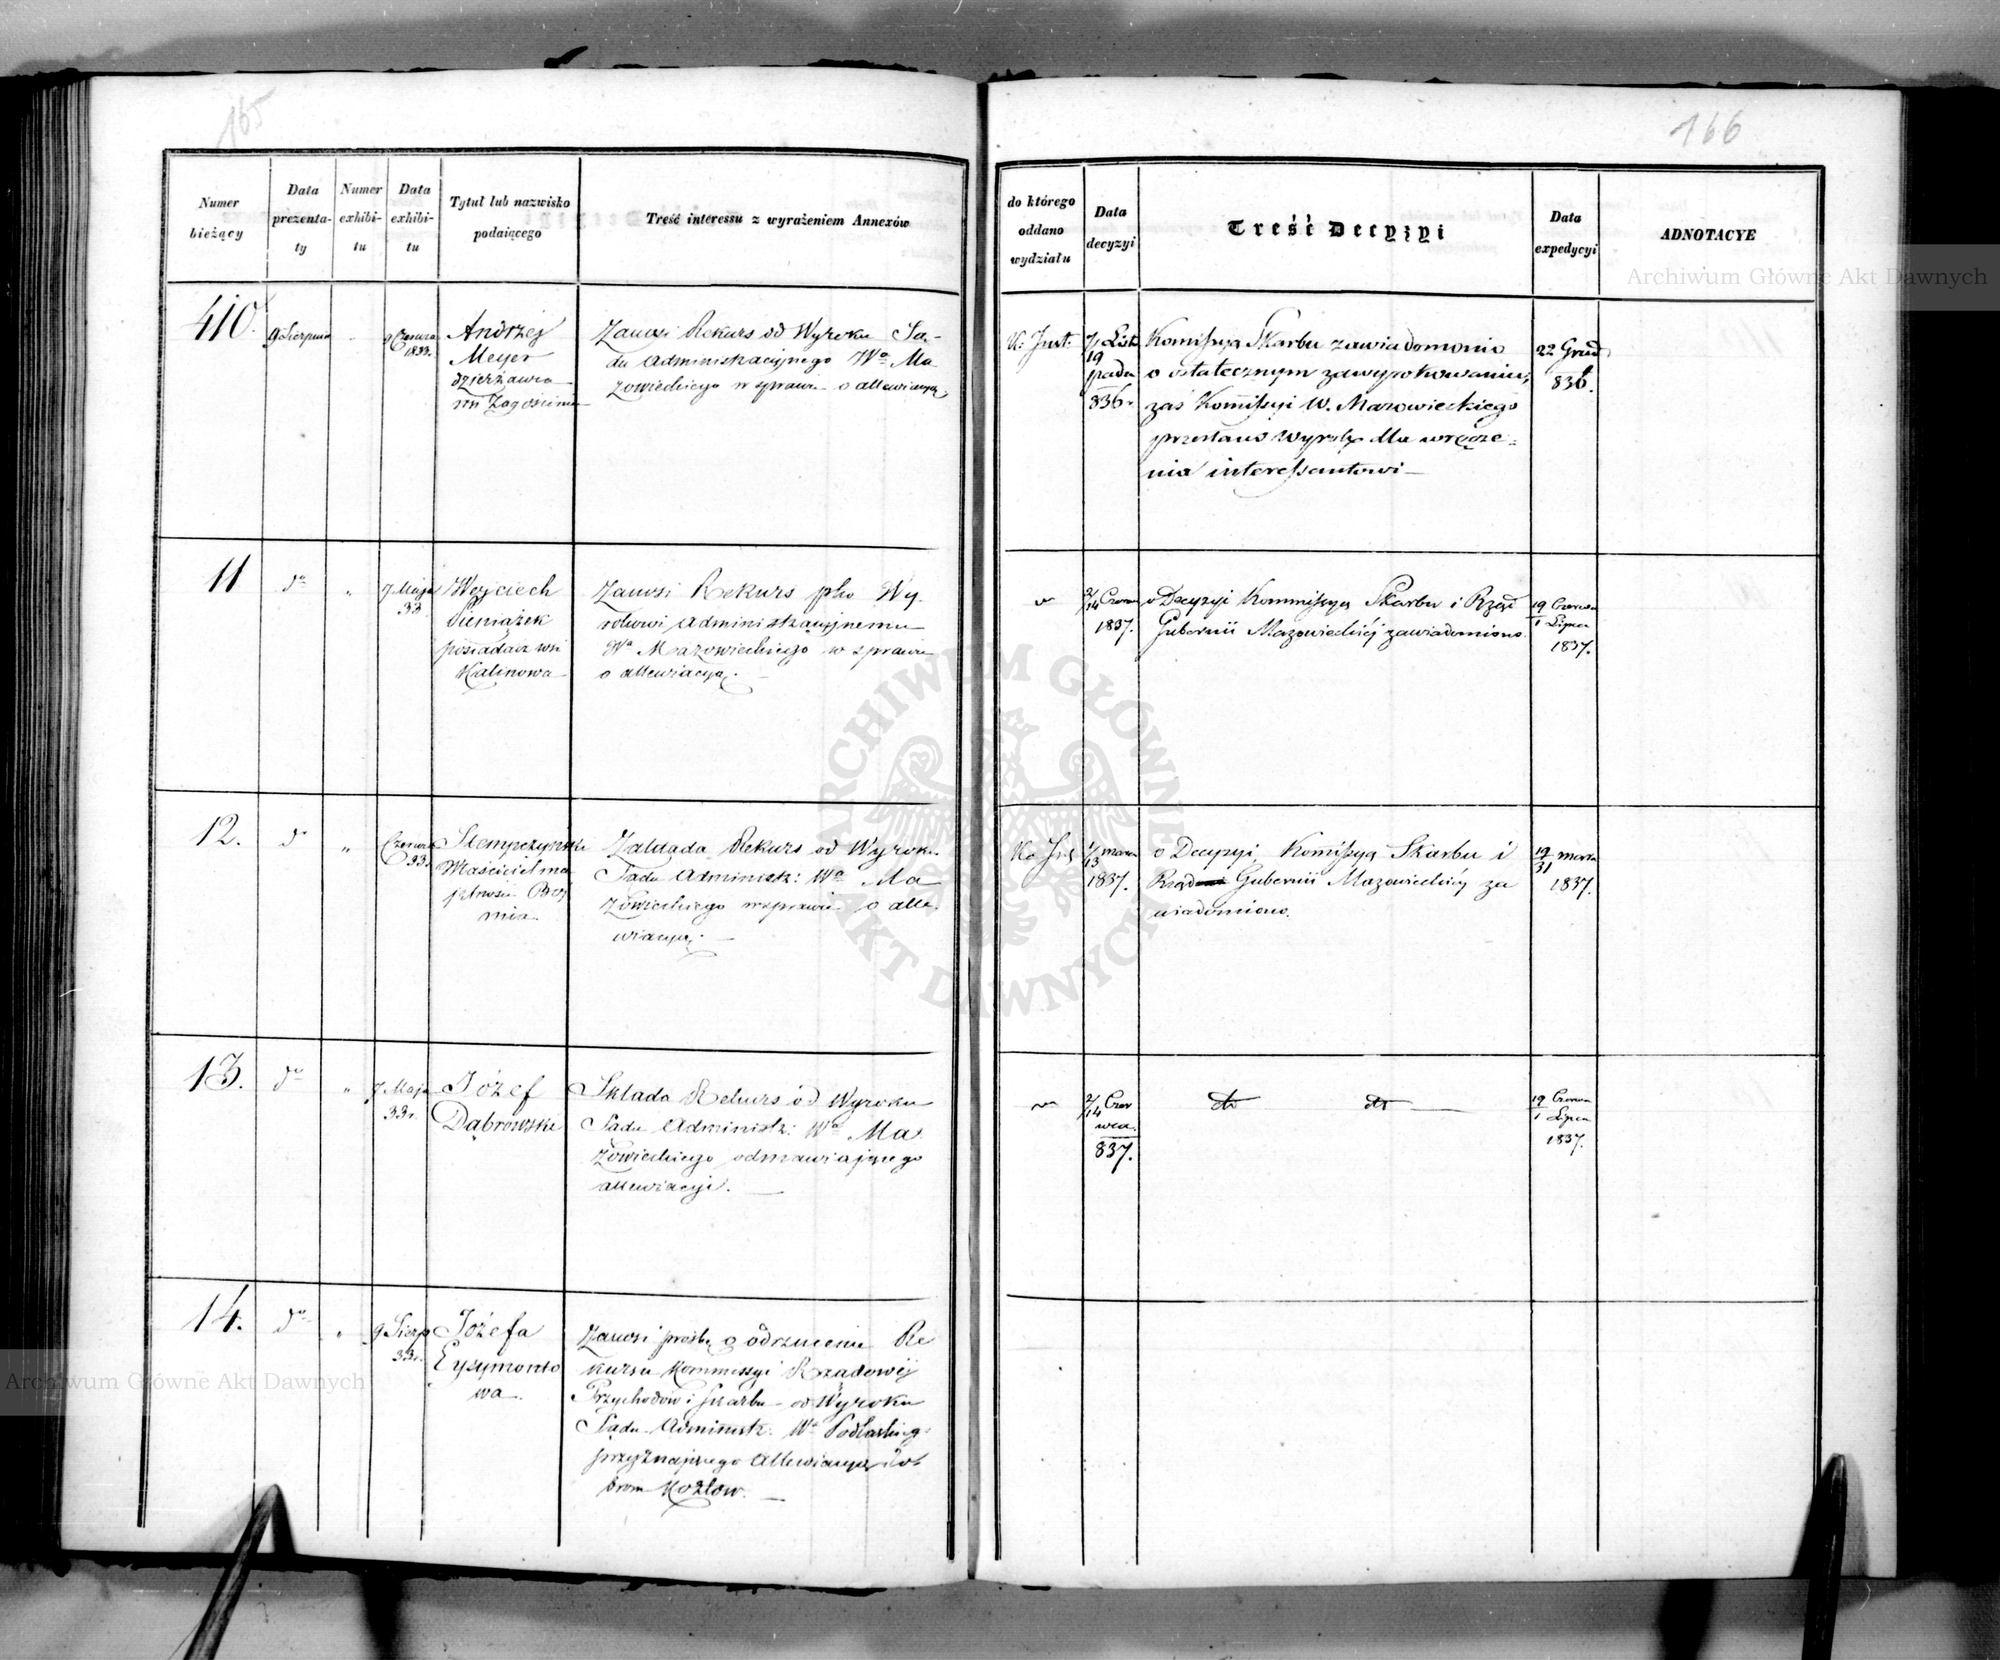 165
Numer bieżący
Data prezenta-ty
Numer exhibi-tu
Data exhibi-tu
Tytuł lub nazwisko podaiącego
Treść interessu z wyrażeniem Annexów
410.
9 Sierpnia
9 Czerwca
1833.
Andrzej
Meyer
dzierżawca
wsi Zagościniec
Zanosi Rekurs od Wyroku Są-
du Administracyjnego Wa Ma
zowieckiego w sprawie o allewiacyą
11
do
"
7 Maja
33
Wojciech
Pieniążek
posiadacz wsi
Kalinowa
Zanosi Rekurs pko Wy-
rokowi Administracyjnemu
Wa Mazowieckiego w sprawie
o allewiacyą.
12.
do
"
Czerwca
33.
Stempczyński
Właściciel ma
jętności
Zakłada Rekurs od Wyroku
Sądu Administr: Wa Ma
zowieckiego w sprawie o alle-
wiacyą.
13.
do
"
7 Maja
33 r.
Józef
Dąbrowski
Składa Rekurs od Wyroku
Sądu Administr: Wa Ma
zowieckiego odmawiającego
allewiacyi.
14.
do
"
9 Sierp
33 r.
Józefa
Eysymonto
wa.
Zanosi prośbę o odrzucenie Re
kursu Kommissyi Rządowéj
Przychodów i Skarbu od Wyroku
Sądu Administr: Wa Podlaskieg-
przyznającego Allewiacyą Do
brom Kozłow.
166
do którego oddano wydziału
Data decyzyi
Treść Decyzyi
Data expedycyi
ADNOTACYE
K: Just:
7/19 Listo
pada
836.
Komissya Skarbu zawiadomiona
o ostatecznym zawyrokowaniu,
zaś Komissyi W. Mazowieckiego
przesłano Wyrok dla wręcze-
nia interessantowi
22 Grud
836.
2/14 Czerwca
1837.
o Decyzyi Kommissya Skarbu i Rząd
Gubernii Mazowieckiéj zawiadomiono.
19 Czerwca
1 Lipca
1837.
Ko Just
1/13 marca
1837.
o Decyzyi Komissya Skarbu i
Rząd Gubernii Mazowieckiéj za
wiadomiono.
19/31 marca
1837.
2/14 Czer
wca.
837.
do do
19 Czerwca
1 Lipca
1837.
Archiwum Główne Akt Dawnych
ARCHIWUM GŁÓWNE AKT DAWNYCH
Archiwum Główne Akt Dawnych